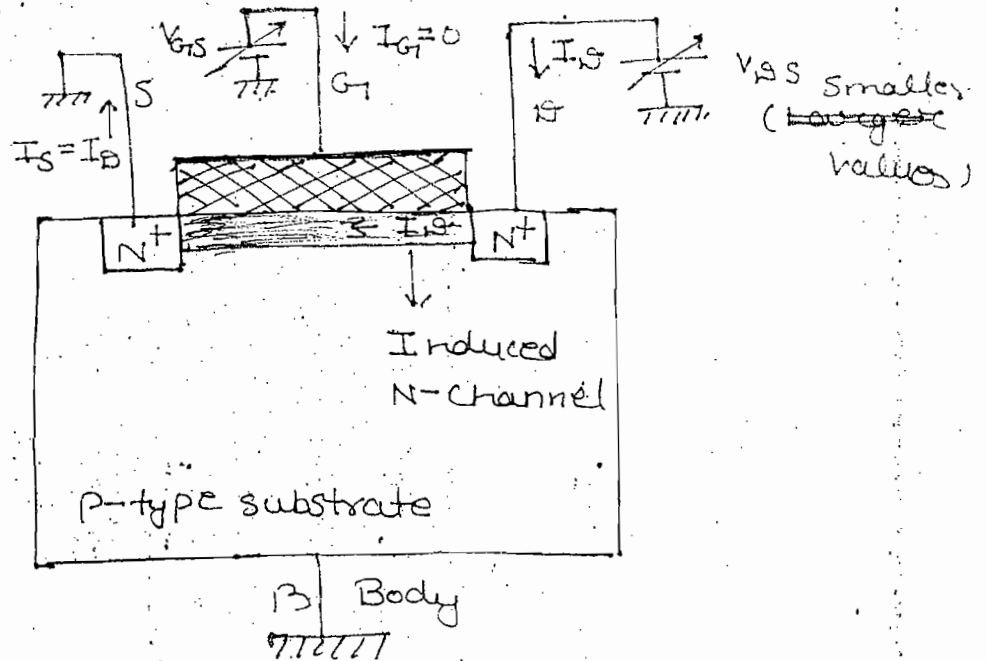 V_GS
I_G=0
G
S
I_S=I_D
I_D
D
V_DS smaller
(larger
values)
N+
I_D
N+
Induced
N-Channel
P-type substrate
B Body